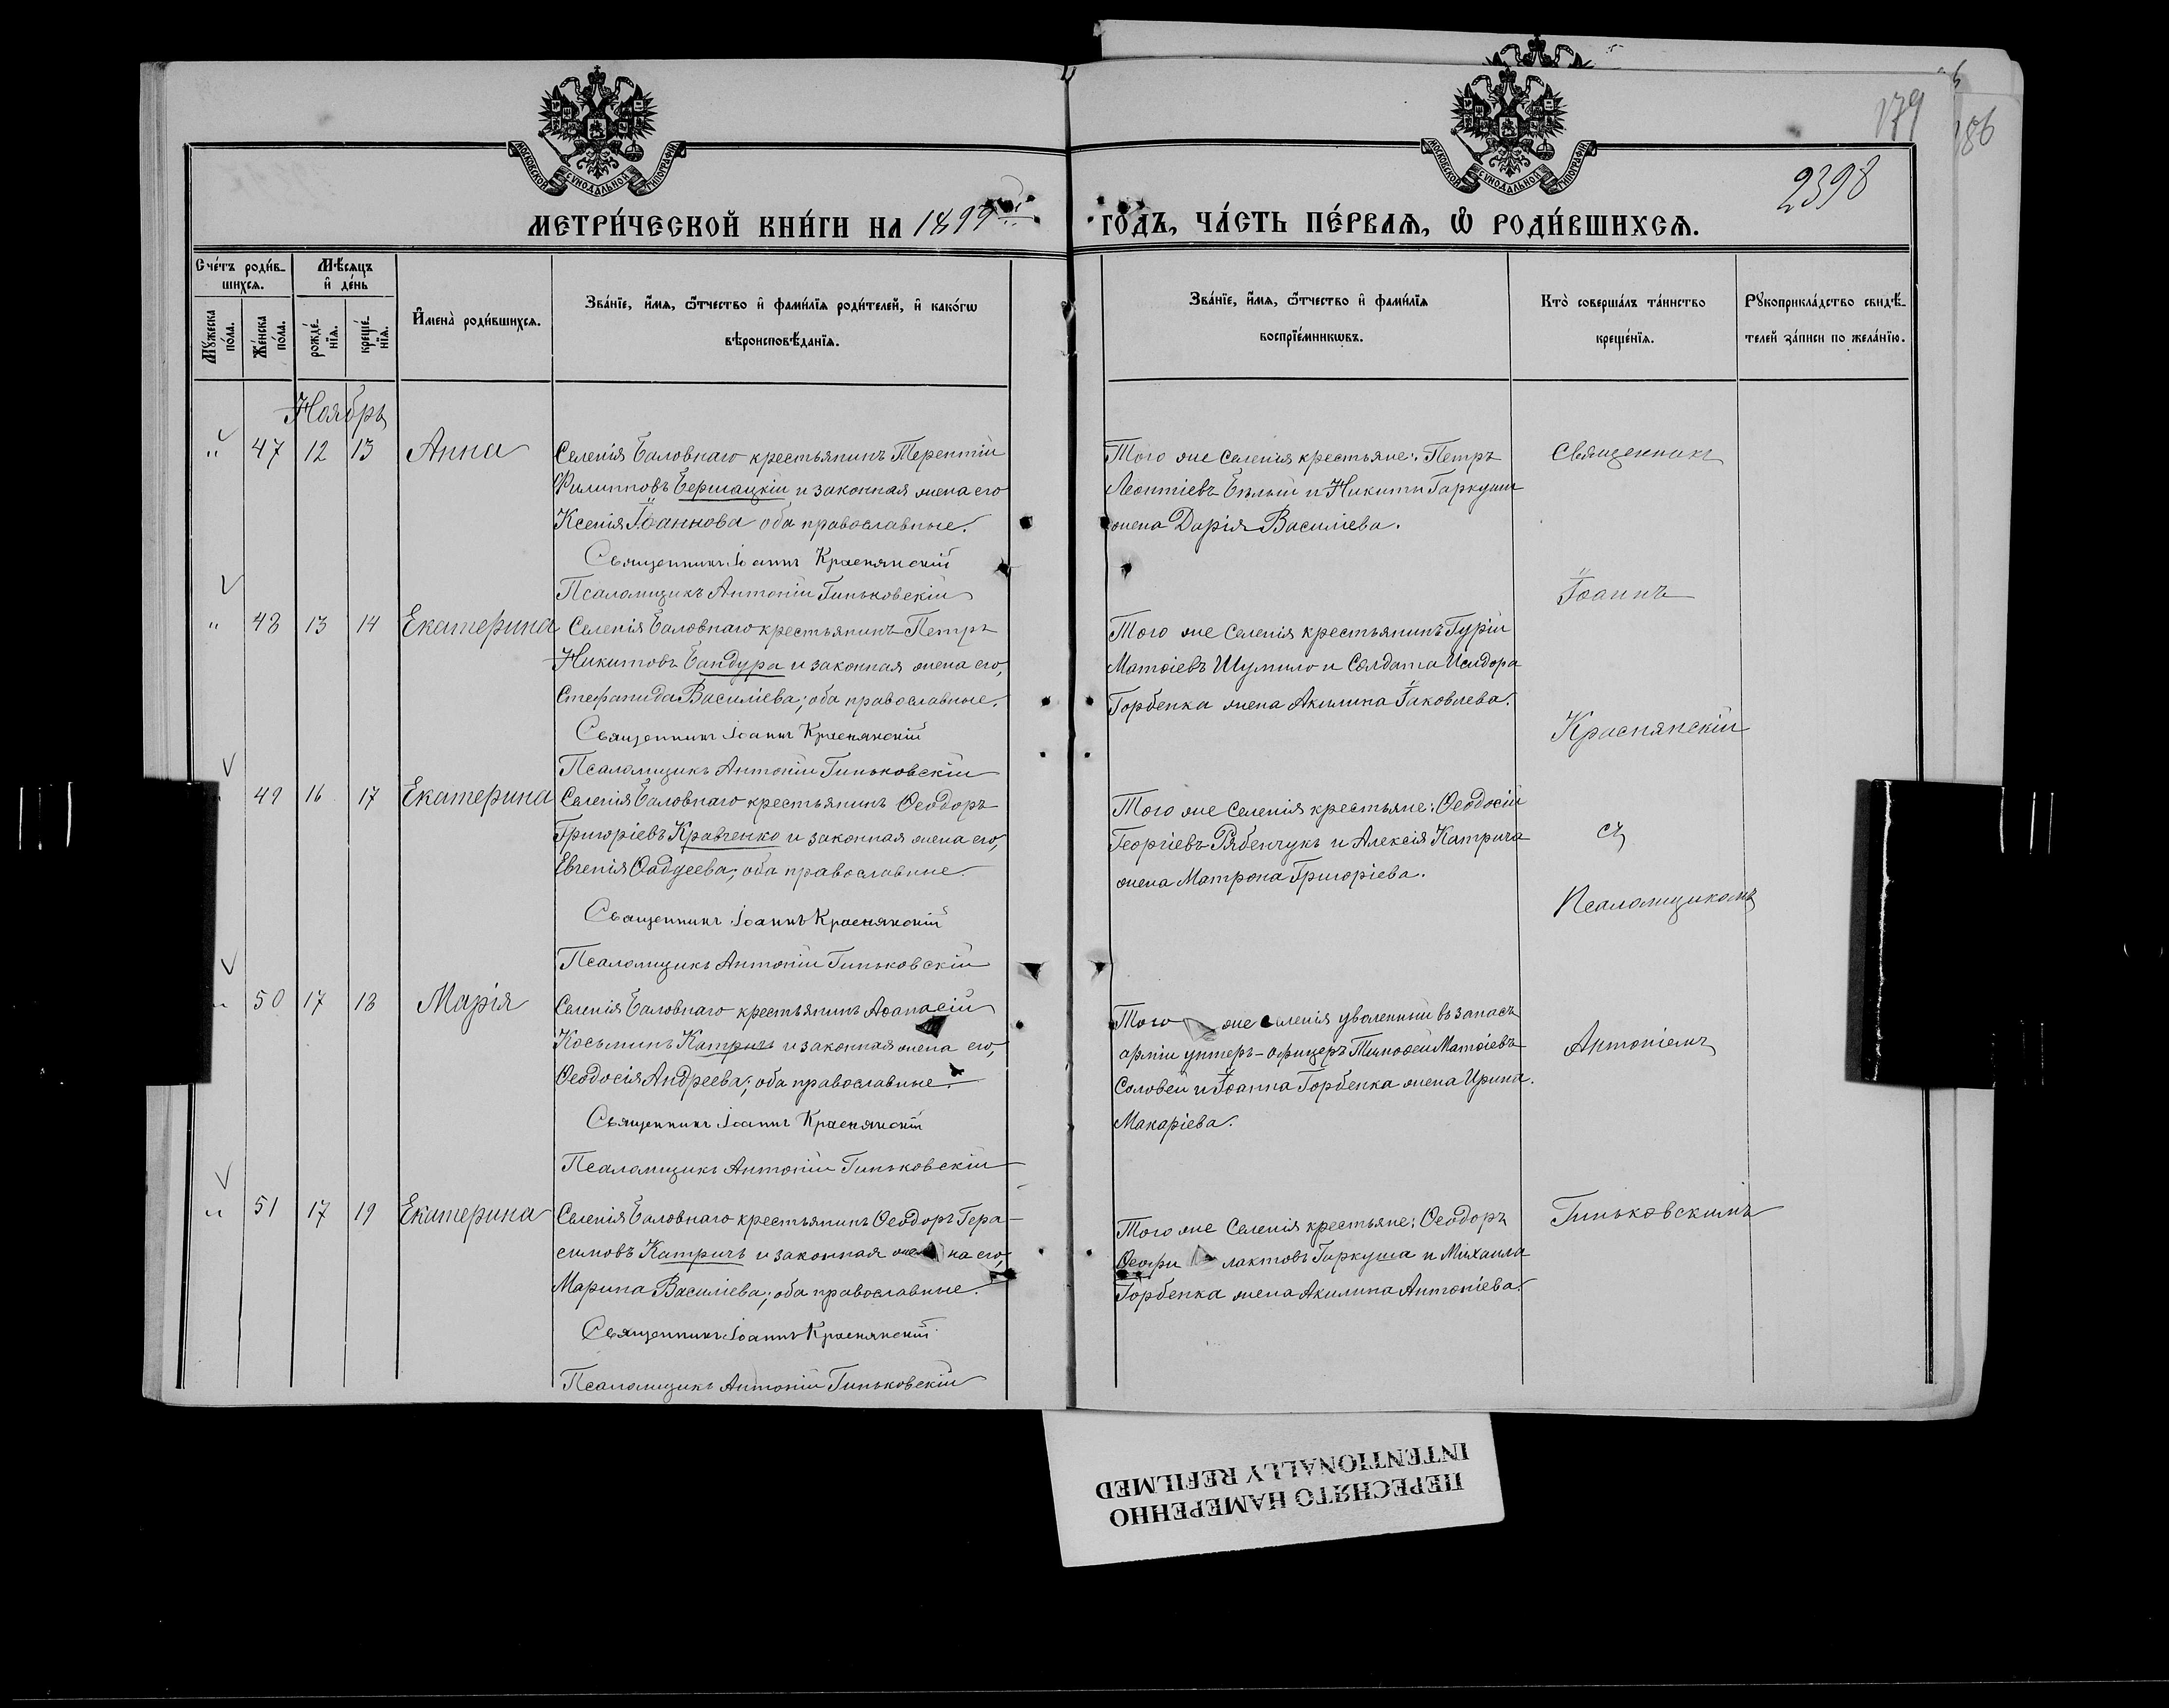 179
186
2398
МОСКОВСКОЙ СѴНОДАЛЬНОЙ ТИПОГРАФІИ
МОСКОВСКОЙ СѴНОДАЛЬНОЙ ТИПОГРАФІИ
МЕТРИ́ЧЕСКОЙ КНИ́ГИ НА 1899
ГО́ДЪ, ЧА́СТЬ ПЕ́РВАЯ, Ѡ РОДИ́ВШИХСЯ.
Сче́тъ роди́в-
шихся.
Мѣ́сяцъ
и҆ де́нь
Мꙋ́жеска
по́ла.
Же́нска
по́ла.
рожде́-
нїя.
креще́-
нїя.
И҆мена̀ роди́вшихся.
Зва́нїе, и҆́мя, ѻ҆́тчество и҆ фами́лїя роди́телей, и҆ како́гѡ
вѣроисповѣ́данїя.
Зва́нїе, и҆́мя, ѻ҆́тчество и҆ фами́лїя
воспрїе́мникѡвъ.
Кто̀ соверша́лъ та́инство
креще́нїя.
Рꙋкоприкла́дство свидѣ́-
телей за́писи по жела́нїю.
Ноябрь
" 47 12 13 Анна
Селенія Баловнаго крестьянинъ Терентій
Филипповъ Бершацкій и законная жена его
Ксенія Іоаннова оба православные.
Священникъ Іоаннъ Краснянскій
Псаломщикъ Антоній Гиньковскій
Того же селенія крестьяне: Петръ
Леонтіевъ Бѣлый и Никиты Гаркуши
жена Дарія Василіева.
Священникъ
Іоаннъ
" 48 13 14 Екатерина
Селенія Баловнаго крестьянинъ Петръ
Никитовъ Бандура и законная жена его,
Стефанида Василіева; оба православные.
Священникъ Іоаннъ Краснянскій
Псаломщикъ Антоній Гиньковскій
Того же селенія крестьянинъ Гурій
Матѳіевъ Шумило и Солдата Исидора
Горбенка жена Акилина Іаковлева.
Краснянскій
49 16 17 Екатерина
Селенія Баловнаго крестьянинъ Ѳеодоръ
Григоріевъ Кравченко и законная жена его,
Евгенія Ѳаддеева; оба православные.
Священникъ Іоаннъ Краснянскій
Псаломщикъ Антоній Гиньковскій
Того же селенія крестьяне: Ѳеодосій
Георгіевъ Рябенчукъ и Алексія Катрича
жена Матрона Григоріева.
съ
Псаломщикомъ
" 50 17 18 Марія
Селенія Баловнаго крестьянинъ Аѳанасій
Косьминъ Катричъ и законная жена его,
Ѳеодосія Андреева; оба православные.
Священникъ Іоаннъ Краснянскій
Псаломщикъ Антоній Гиньковскій
Того же селенія уволенный въ запасъ
арміи унтеръ-офицеръ Тимоѳей Матѳіевъ
Соловей и Іоанна Горбенка жена Ирина
Макаріева.
Антоніемъ
" 51 17 19 Екатерина
Селенія Баловнаго крестьянинъ Ѳеодоръ Гера-
симовъ Катричъ и законная жена его,
Марина Василіева; оба православные.
Священникъ Іоаннъ Краснянскій
Псаломщикъ Антоній Гиньковскій
Того же Селенія крестьяне: Ѳеодоръ
Ѳеофилактовъ Гаркуша и Михаила
Горбенка жена Акилина Антоніева.
Гиньковскимъ
ПЕРЕСНЯТО НАМЕРЕННО
INTENTIONALLY REFILMED